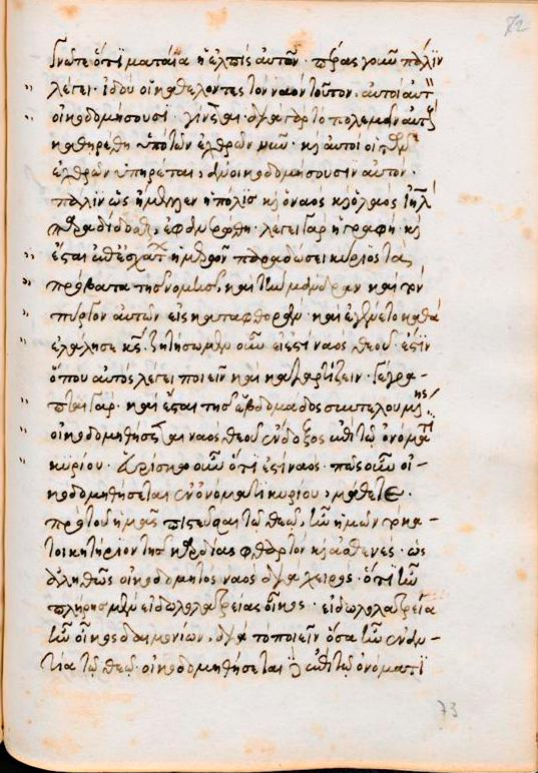 72
Γνωτε ὅτι ματαία ἡ ἐλπὶς αὐτῶν· πέρας γοῦν πάλιν
λέγει· ἰδοὺ οἱ καθελόντες τὸν ναὸν τοῦτον, αὐτοὶ αὐτὸν
οἰκοδομήσουσι· γίνεται· διὰ γὰρ τὸ πολεμεῖν αὐτοὺς
καθηρέθη ὑπὸ τῶν ἐχθρῶν νῦν· καὶ αὐτοὶ οἱ τῶν
ἐχθρῶν ὑπηρέται, ἀνοικοδομήσουσιν αὐτόν·
πάλιν ὡς ἤμελλεν ἡ πόλις καὶ ὁ ναὸς καὶ ὁ λαὸς ἰηλ
παραδίδοσθαι, ἐφανερώθη· λέγει γὰρ ἡ γραφή· καὶ
ἔσται ἐπ' ἐσχάτων ἡμερῶν παραδώσει κύριος τὰ
πρόβατα τῆς νομῆς, καὶ τὴν μάνδραν καὶ τὸν
πύργον αὐτῶν εἰς καταφθοράν· καὶ ἐγένετο καθὰ
ἐλάλησε κς· ζητήσωμεν οὖν εἰ ἔστι ναὸς θεοῦ· ἔστιν
ὅπου αὐτὸς λέγει ποιεῖν καὶ καταρτίζειν· γέγρα-
πται γάρ· καὶ ἔσται τῆς ἑβδομάδος συντελουμένης
οἰκοδομηθήσεται ναὸς θεοῦ ἐνδόξως ἐπὶ τῷ ὀνόματι
κυρίου· εὑρίσκω οὖν ὅτι ἔστι ναός· πῶς οὖν οἰ-
κοδομηθήσεται ἐν ὀνόματι κυρίου, μάθετε·
πρὸ τοῦ ἡμᾶς πιστεῦσαι τῷ θεῷ, ἦν ἡμῶν τὸ κα-
τοικητήριον τῆς καρδίας φθαρτὸν καὶ ἀσθενές· ὡς
ἀληθῶς οἰκοδομητὸς ναὸς διὰ χειρός· ὅτι ἦν
πλήρης μὲν εἰδωλολατρείας οἶκος· εἰδωλολατρεία
ἦν οἶκος δαιμονίων, διὰ τὸ ποιεῖν ὅσα ἦν ἐναν-
τία τῷ θεῷ· οἰκοδομηθήσεται δὲ ἐπὶ τῷ ὀνόματι
73